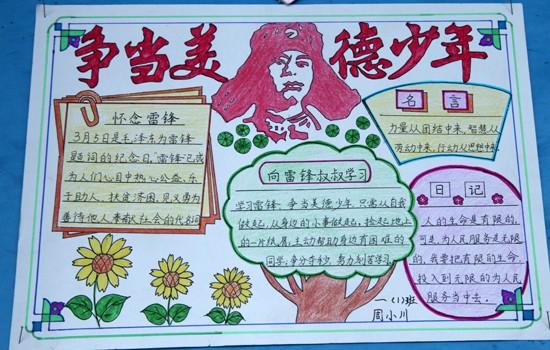 争当美德少年
怀念雷锋
3月5日是毛泽东为雷锋
题词的纪念日,"雷锋"已成
为人们心目中热心公益、乐
于助人、扶贫济困、见义勇为
善待他人奉献社会的代名词
名言
力量从团结中来,智慧从
劳动中来,行动从思想中来
向雷锋叔叔学习
学习雷锋,争当美德少年,只需从自我
做起,从身边的小事做起。捡起地上
的一片纸屑,主动帮助身边有困难的
同学;争分夺秒,努力刻苦学习
日记
人的生命是有限的,
可是,为人民服务是无限
的,我要把有限的生命,
投入到无限的为人民
服务当中去。
一(1)班
周小川